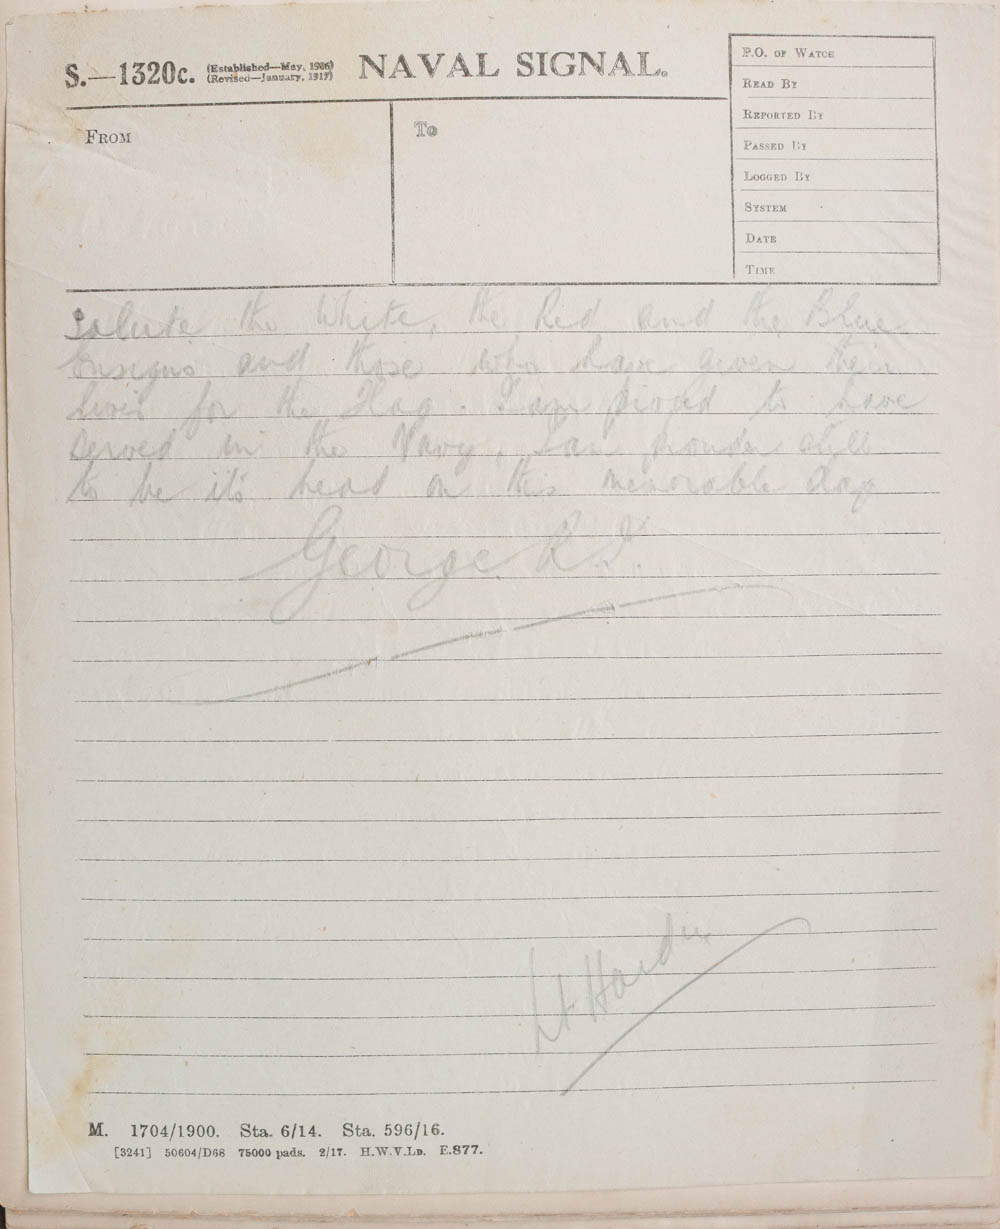 S.—1320c. (Established—May, 1906)
(Revised—January, 1917)
NAVAL SIGNAL.
P.O. OF WATCH
READ BY
REPORTED BY
PASSED BY
LOGGED BY
SYSTEM
DATE
TIME
FROM
To
Salute the White, the Red and the Blue
Ensigns and those who have given their
lives for the Flag. I am proud to have
served in the Navy, I am prouder still
to be it's head on this memorable day
George R.I.
Lt Hardin
M. 1704/1900. Sta. 6/14. Sta. 596/16.
[3241] 50604/D68 75000 pads. 2/17. H.W.V.LD. E.877.